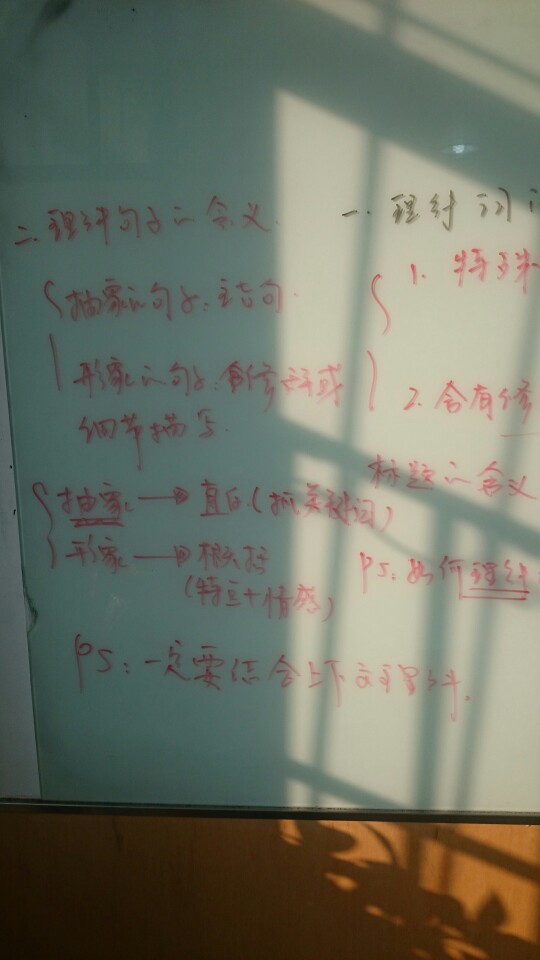 二、理解句子的含义
抽象的句子：主旨句.
形象的句子：含修辞或
细节描写.
抽象→直白(抓关键词)
形象→概括
(特点+情感)
PS：一定要结合上下文理解.
一.理解词
1. 特殊
2. 含有修
标题的含义
PS：如何理解